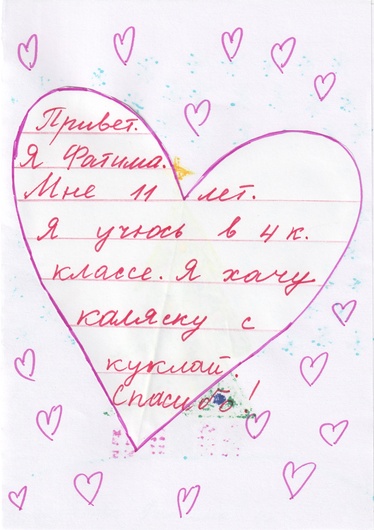 Привет.
Я Фатима.
Мне 11 лет.
Я учюсь в 4 к.
классе. Я хачу
каляску с
куклай.
Спасибо!